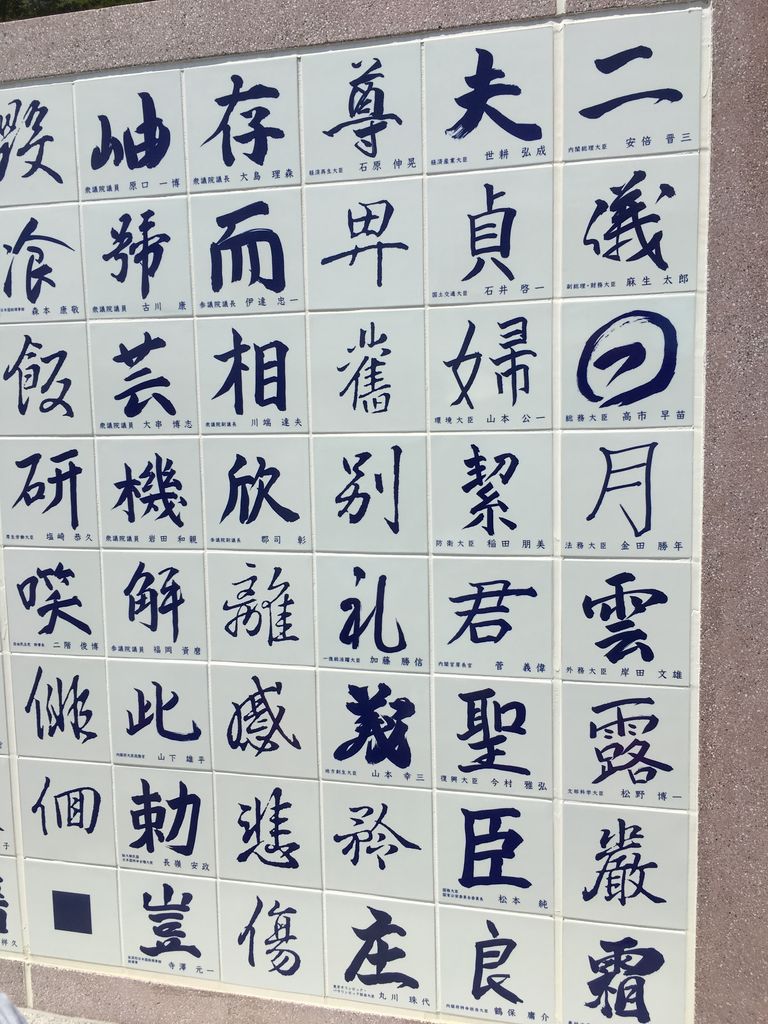 二
内閣総理大臣 安倍 晋三
儀
副総理・財務大臣 麻生 太郎
総務大臣 高市 早苗
月
法務大臣 金田 勝年
雲
外務大臣 岸田 文雄
露
文部科学大臣 松野 博一
嚴
霜
夫
経済産業大臣 世耕 弘成
貞
国土交通大臣 石井 啓一
婦
環境大臣 山本 公一
絜
防衛大臣 稲田 朋美
君
内閣官房長官 菅 義偉
聖
復興大臣 今村 雅弘
臣
国務大臣
国家公安委員会委員長 松本 純
良
内閣府特命担当大臣 鶴保 庸介
尊
経済再生大臣 石原 伸晃
卑
舊
別
礼
一億総活躍大臣 加藤 勝信
地方創生大臣 山本 幸三
矜
庄
丸川 珠代
存
衆議院議長 大島 理森
而
参議院議長 伊達 忠一
相
衆議院副議長 川端 達夫
欣
参議院副議長 郡司 彰
離
感
悲
傷
岫
衆議院議員 原口 一博
號
衆議院議員 古川 康
芸
衆議院議員 大串 博志
機
衆議院議員 岩田 和親
解
参議院議員 福岡 資麿
此
山下 雄平
勅
長嶺 安政
豈
寺澤 元一
飡
森本 康敬
飯
研
厚生労働大臣 塩崎 恭久
自由民主党 幹事長 二階 俊博